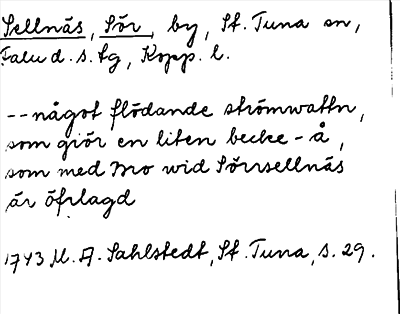 Sellnäs, Sör, by, St. Tuna sn,
Falu d. s. tg, Kopp. l.
--något flödande strömwattn,
som giör en liten becke-å,
som med Bro wid Sörrsellnäs
är öfrlagd
1743 M. A. Sahlstedt, St. Tuna, s. 29.